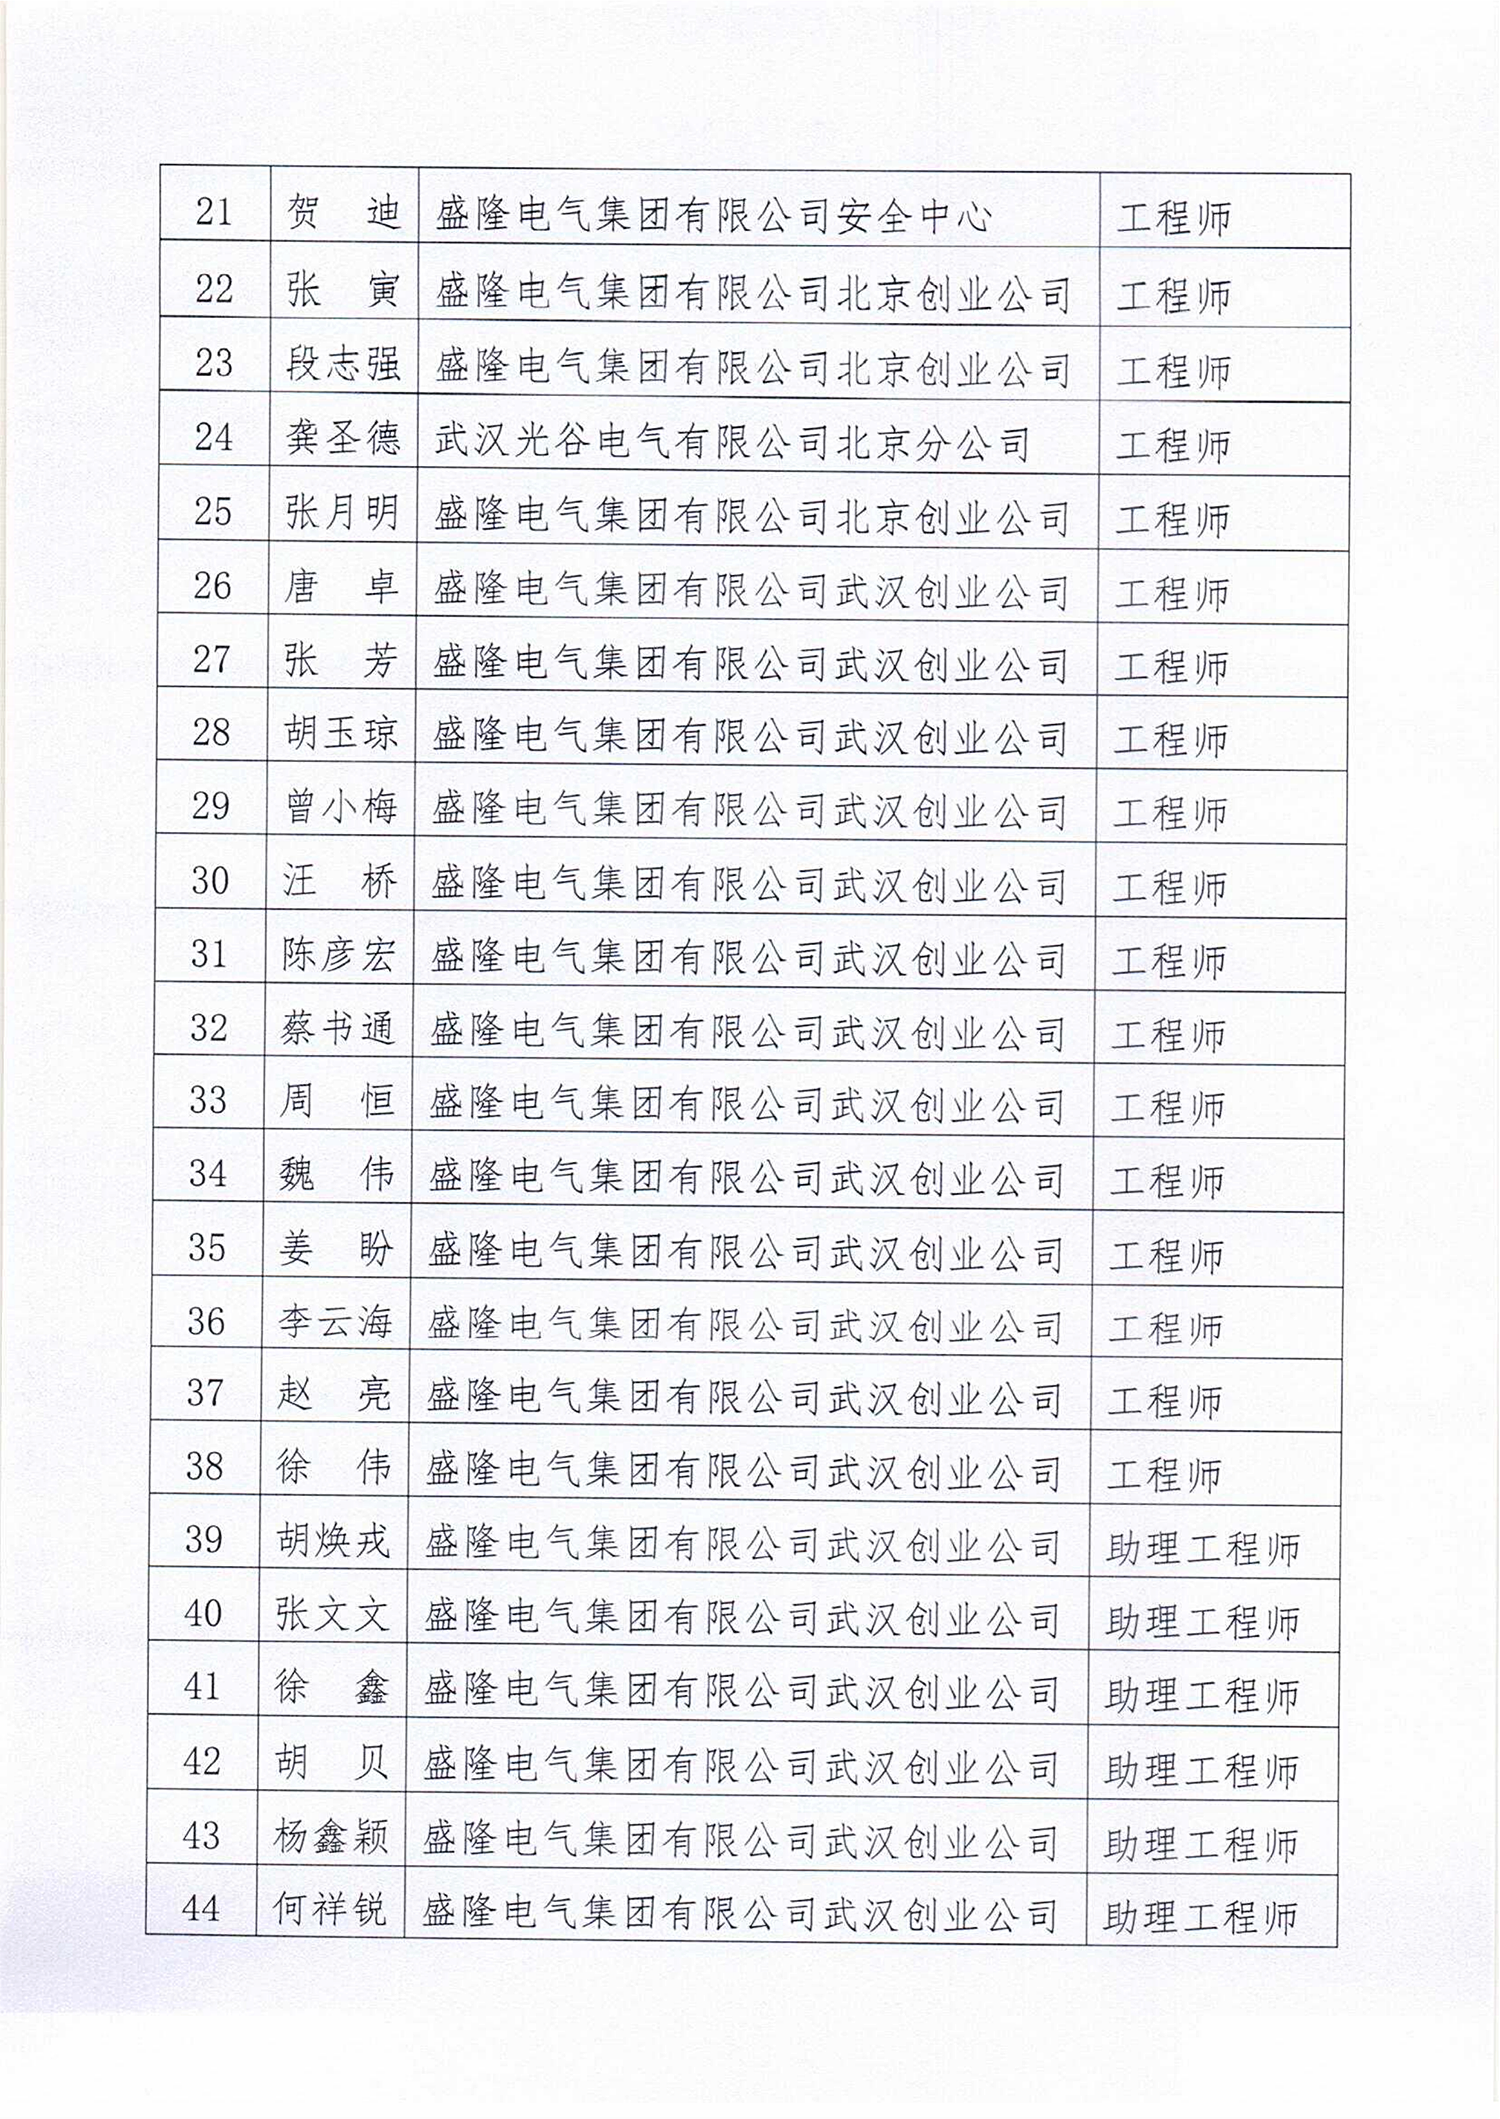 21 贺 迪 盛隆电气集团有限公司安全中心 工程师
22 张 寅 盛隆电气集团有限公司北京创业公司 工程师
23 段志强 盛隆电气集团有限公司北京创业公司 工程师
24 龚圣德 武汉光谷电气有限公司北京分公司 工程师
25 张月明 盛隆电气集团有限公司北京创业公司 工程师
26 唐 卓 盛隆电气集团有限公司武汉创业公司 工程师
27 张 芳 盛隆电气集团有限公司武汉创业公司 工程师
28 胡玉琼 盛隆电气集团有限公司武汉创业公司 工程师
29 曾小梅 盛隆电气集团有限公司武汉创业公司 工程师
30 汪 桥 盛隆电气集团有限公司武汉创业公司 工程师
31 陈彦宏 盛隆电气集团有限公司武汉创业公司 工程师
32 蔡书通 盛隆电气集团有限公司武汉创业公司 工程师
33 周 恒 盛隆电气集团有限公司武汉创业公司 工程师
34 魏 伟 盛隆电气集团有限公司武汉创业公司 工程师
35 姜 盼 盛隆电气集团有限公司武汉创业公司 工程师
36 李云海 盛隆电气集团有限公司武汉创业公司 工程师
37 赵 亮 盛隆电气集团有限公司武汉创业公司 工程师
38 徐 伟 盛隆电气集团有限公司武汉创业公司 工程师
39 胡焕戎 盛隆电气集团有限公司武汉创业公司 助理工程师
40 张文文 盛隆电气集团有限公司武汉创业公司 助理工程师
41 徐 鑫 盛隆电气集团有限公司武汉创业公司 助理工程师
42 胡 贝 盛隆电气集团有限公司武汉创业公司 助理工程师
43 杨鑫颖 盛隆电气集团有限公司武汉创业公司 助理工程师
44 何祥锐 盛隆电气集团有限公司武汉创业公司 助理工程师